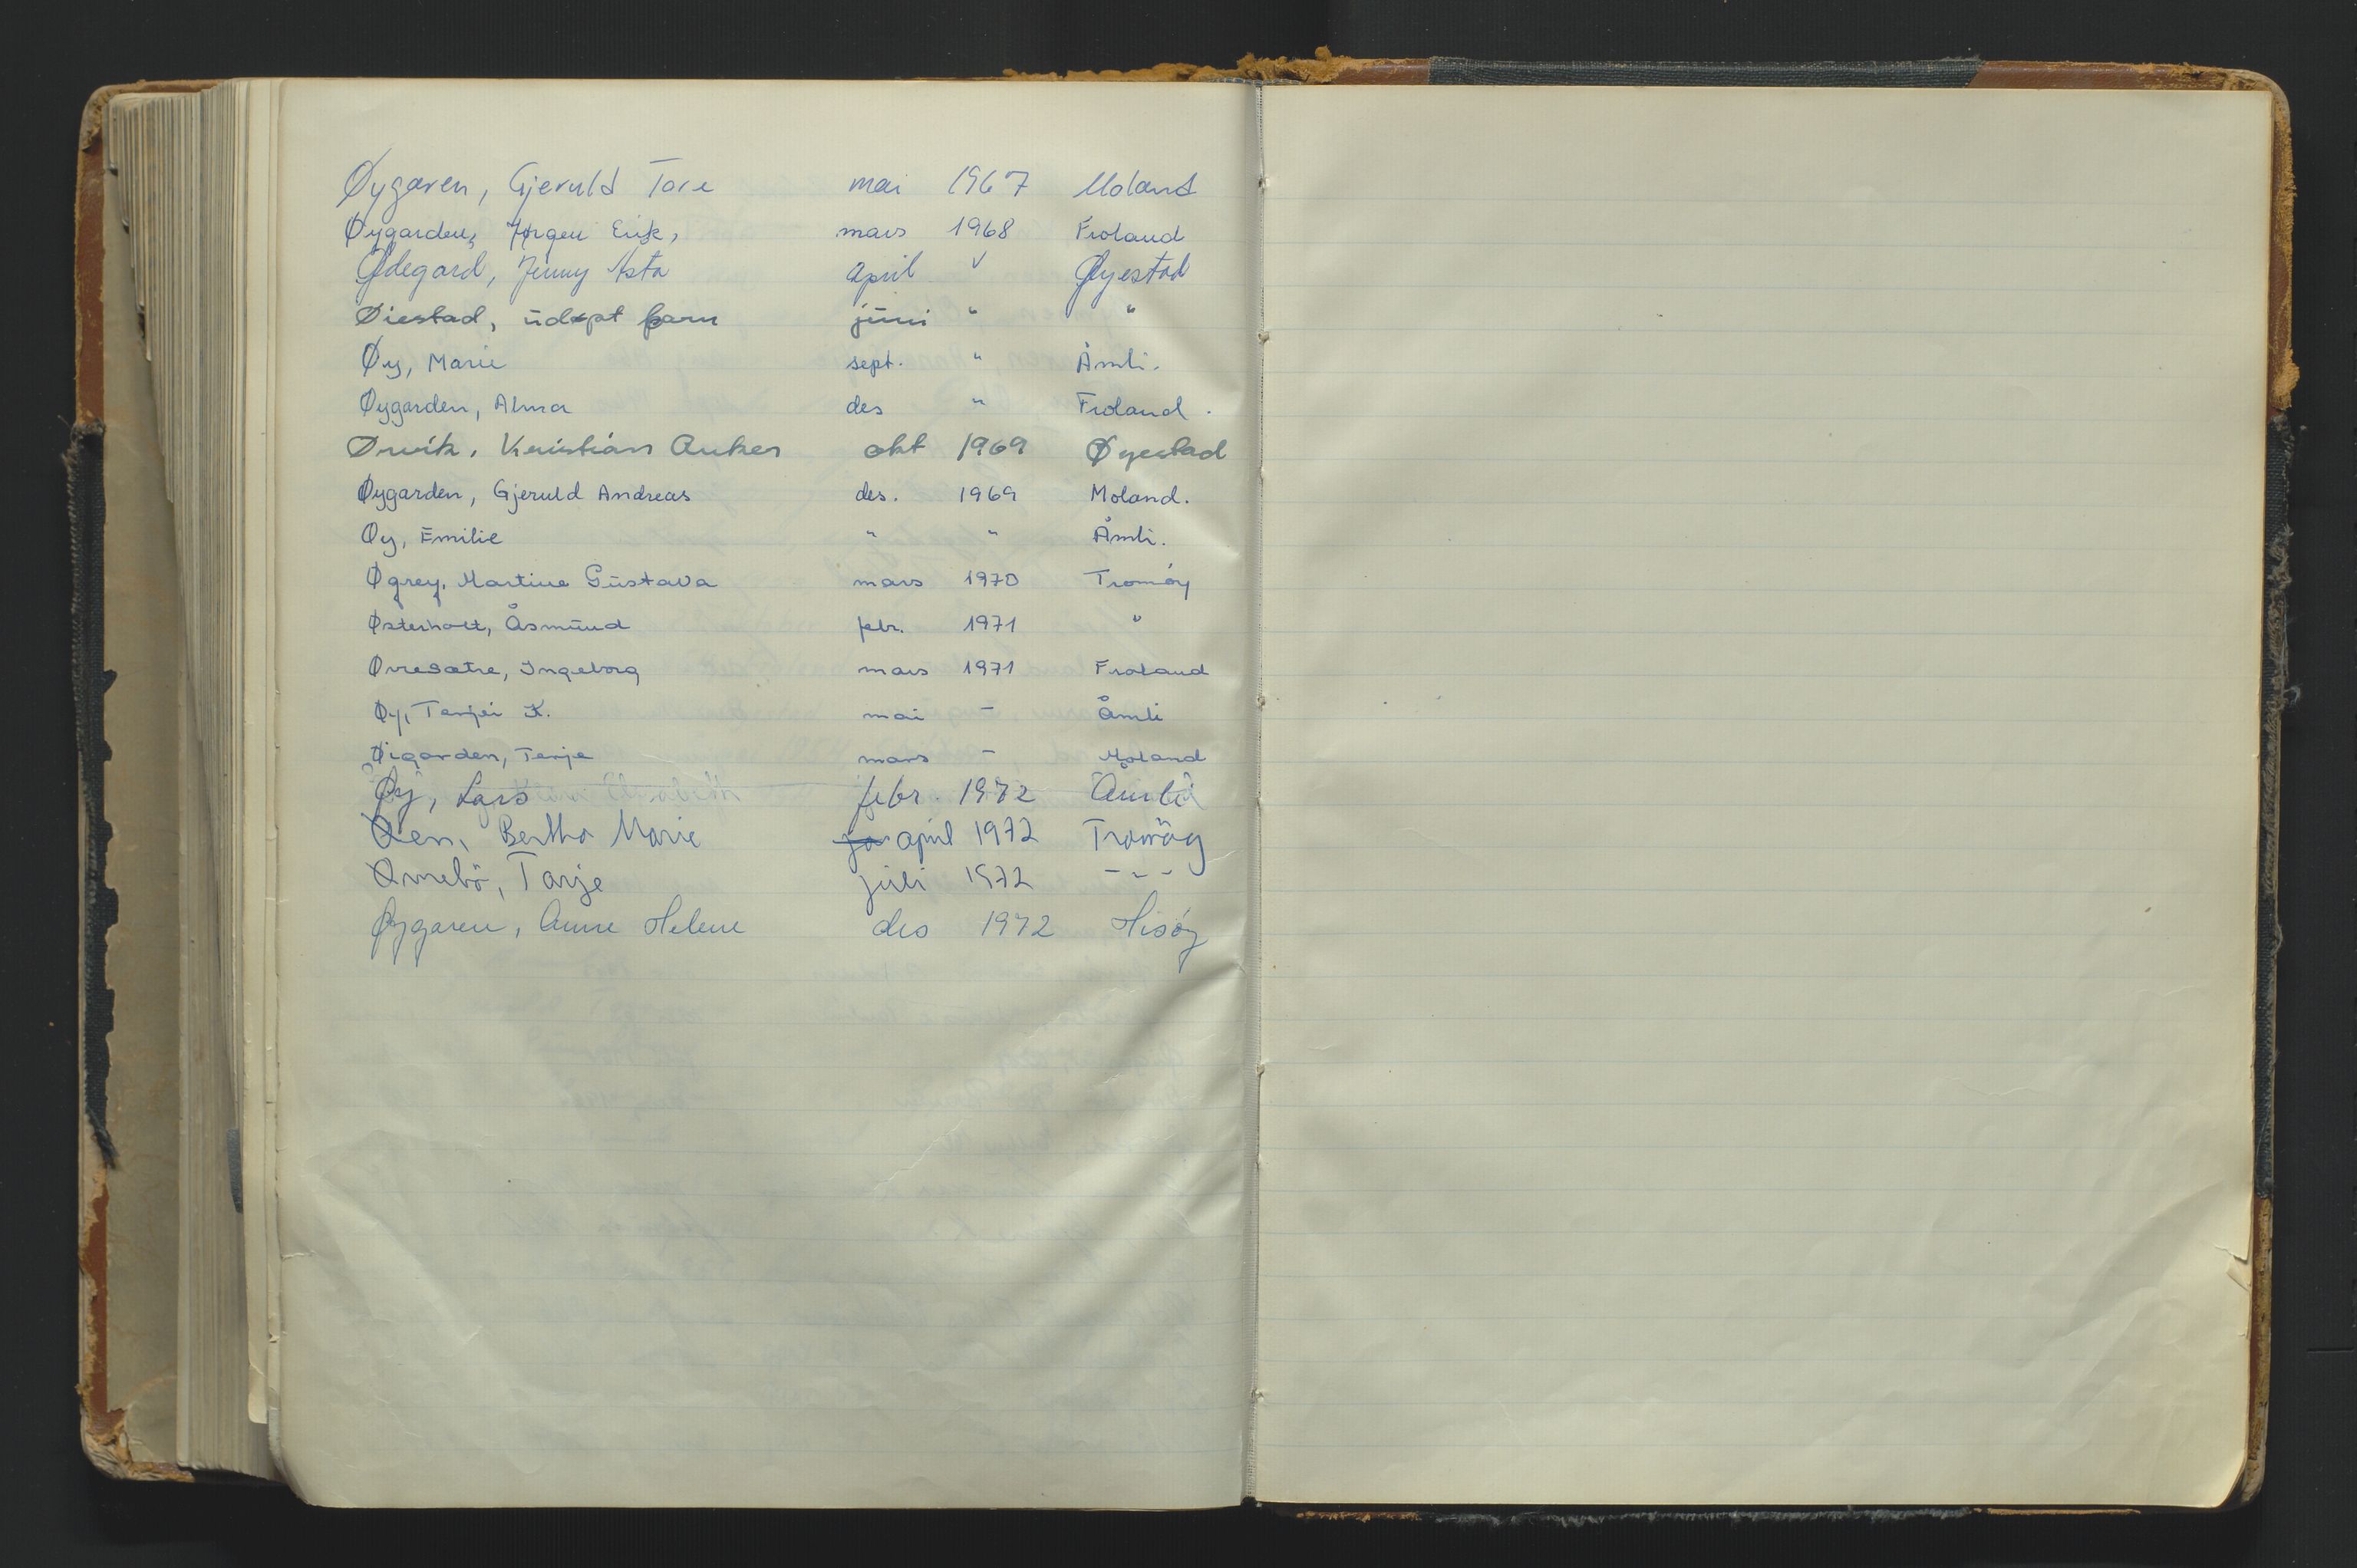 Øygaren, Gjeruld Tore mai 1967 Moland
Øygarden, Jørgen Erik, mars 1968 Froland
Ødegard, Jenny Asta april " Øyestad
Øiestad, udøpt barn juni " "
Øy, Marie sept. " Åmli.
Øygarden, Alma des " Froland.
Ørvik, Kristian Anker okt 1969 Øyestad
Øygarden, Gjeruld Andreas des. 1969 Moland.
Øy, Emilie " " Åmli.
Øgrey, Martine Gustava mars 1970 Tromøy
Østerholt, Åsmund febr. 1971 "
Øvresætre, Ingeborg mars 1971 Froland
Øy, Tarjei K. mai - Åmli
Øigarden, Terje mars - Moland
Øy, Lars febr. 1972 Åmli
Øen, Bertha Marie april 1972 Tromöy
Ørnebö, Tarje juli 1972 - - -
Øygaren, Anne Helene des 1972 Hisøy